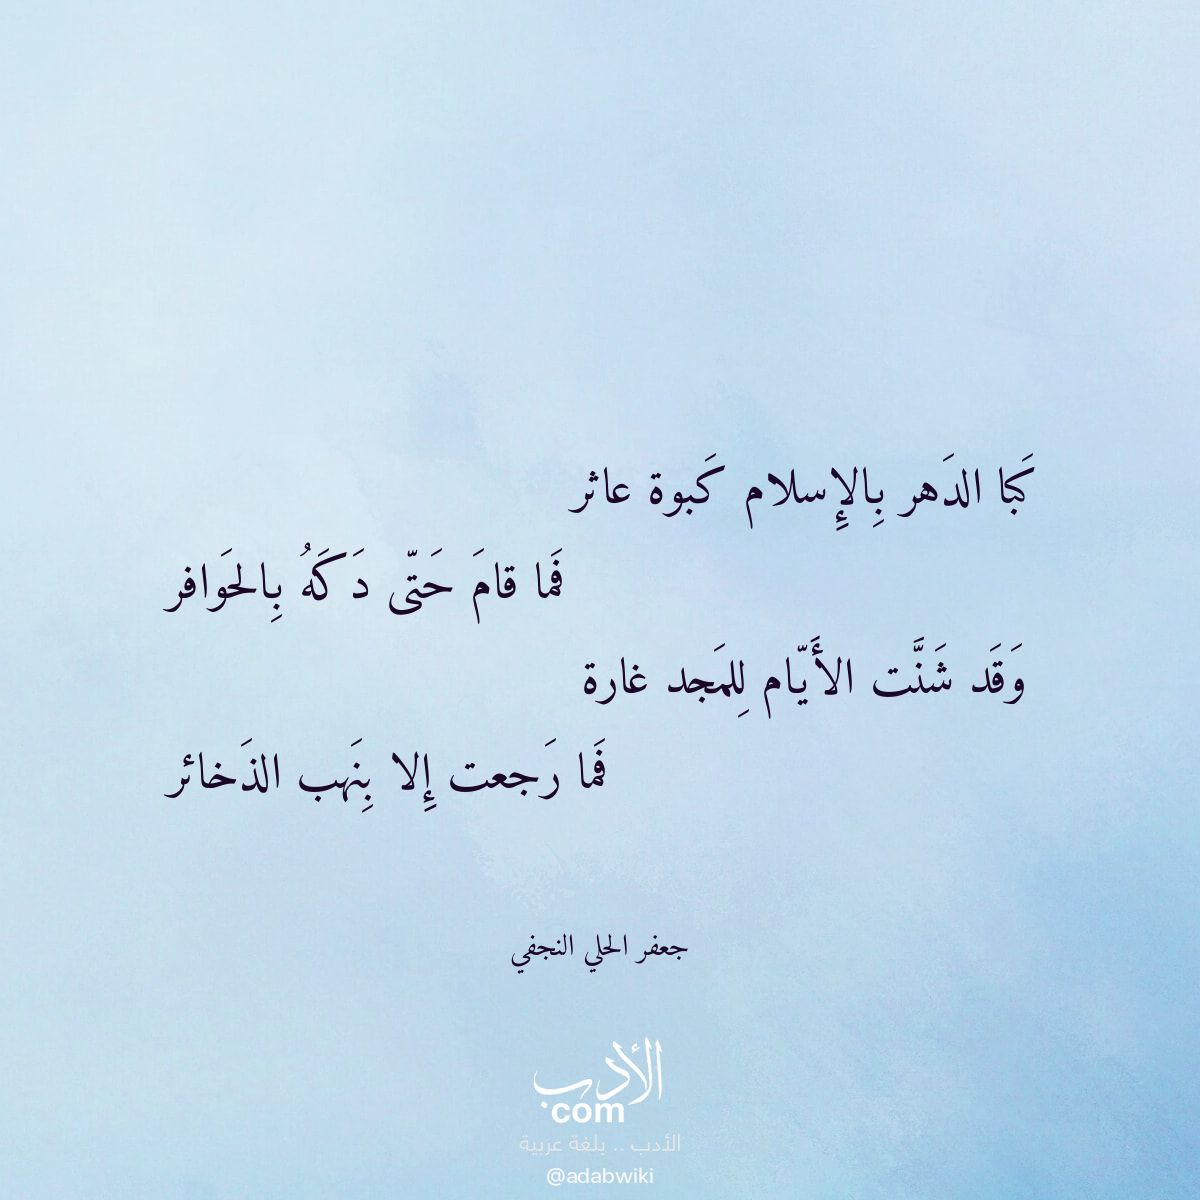 كَبا الدَهر بِالإِسلام كَبوة عاثر
فَما قامَ حَتّى دَكَهُ بِالحَوافر
وَقَد شَنَّت الأَيّام لِلمَجد غارة
فَما رَجعت إِلا بِنَهب الذَخائر
جعفر الحلي النجفي
الأدب
com
الأدب .. بلغة عربية
@adabwiki